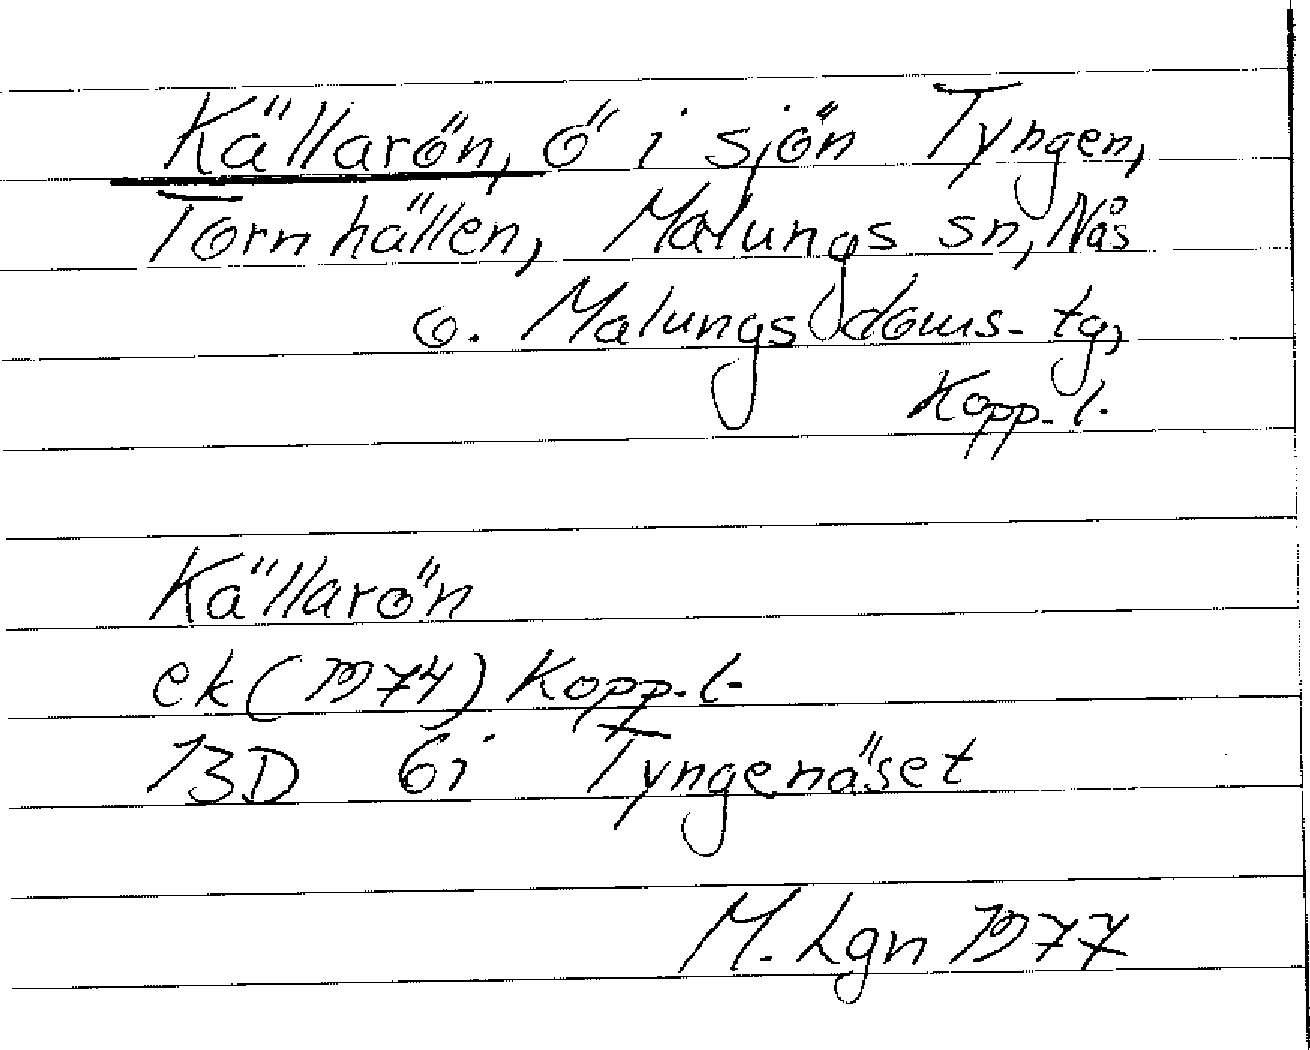 Källarön, ö i sjön Tyngen,
Tornhällen, Malungs sn, Nås
o. Malungs doms. tg,
Kopp. l.
Källarön
ek (1974) Kopp. l.
13D 6i Tyngenäset
M. Lgn 1977